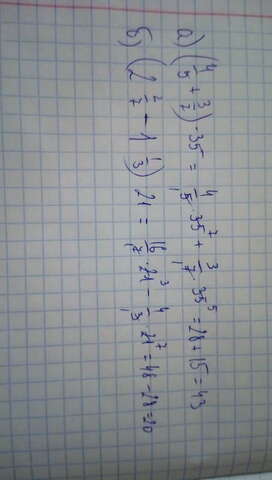 а) (4/5 + 3/7) · 35 = 4/5 · 35⁷ + 3/7 · 35⁵ = 28 + 15 = 43
б) (2 2/7 - 1 1/3) · 21 = 16/7 · 21³ - 4/3 · 21⁷ = 48 - 28 = 20